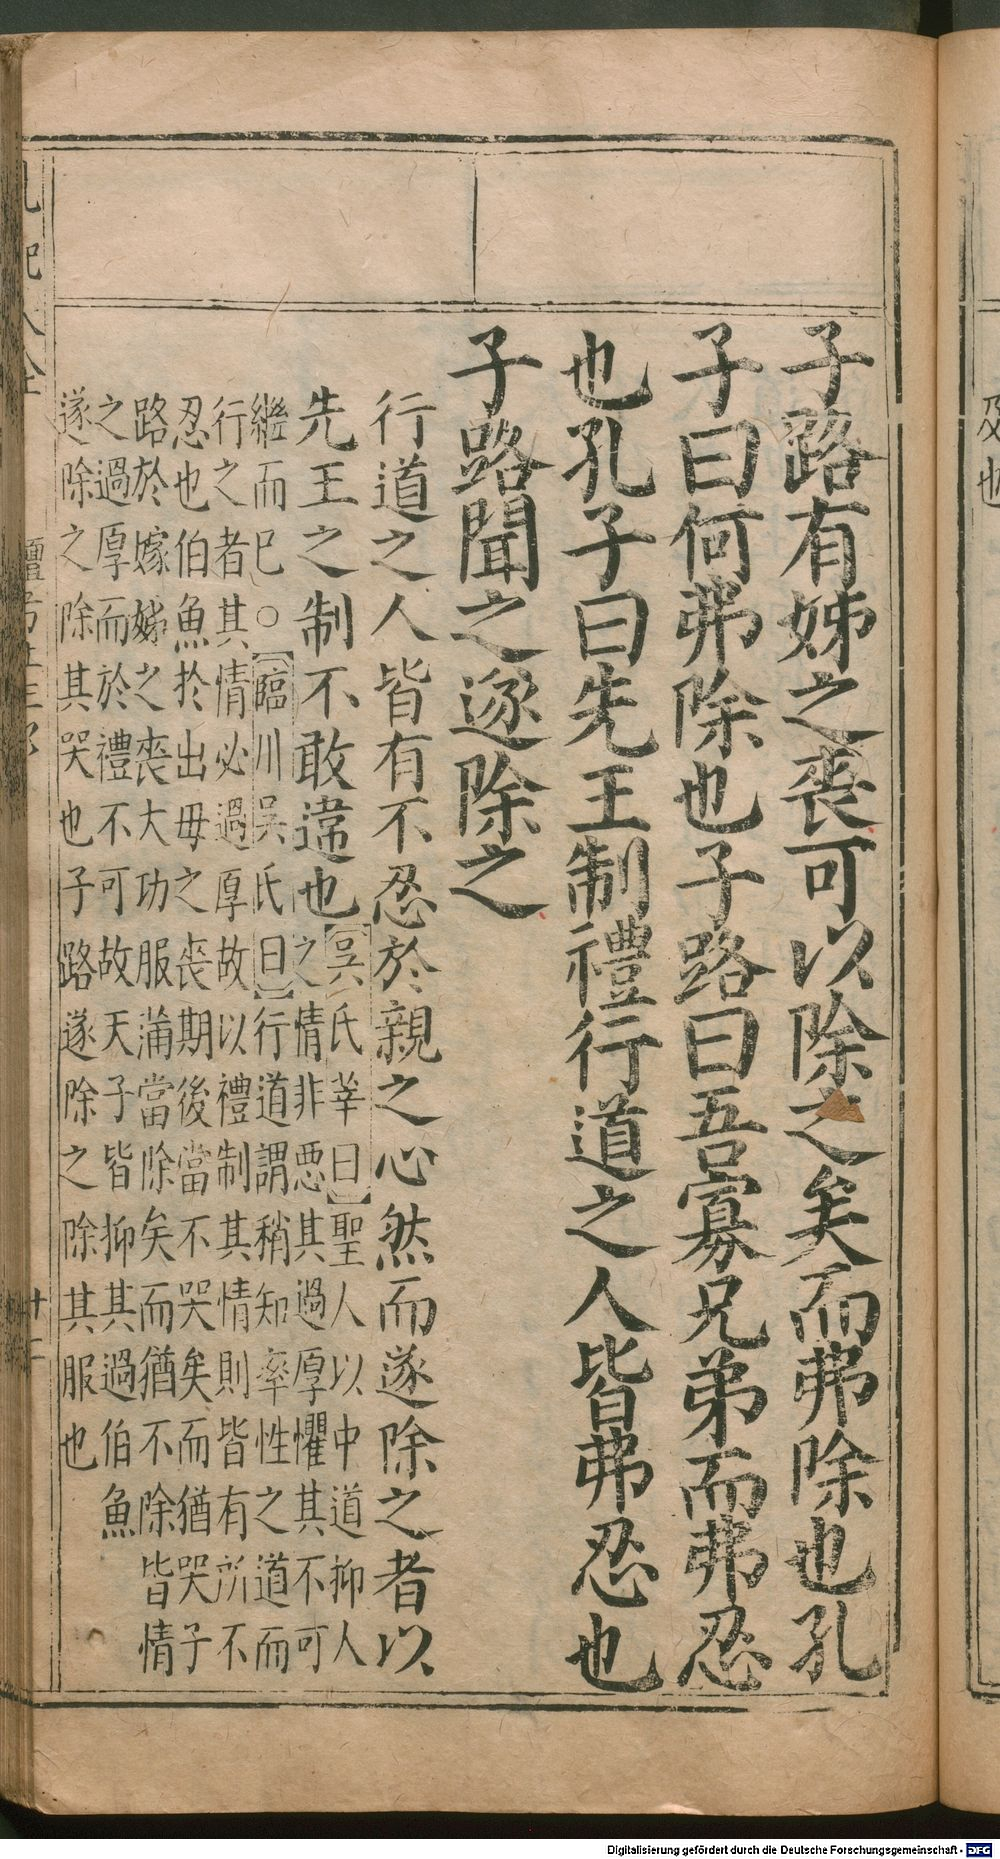 及也
子路有姊之喪可以除之矣而弗除也孔
子曰何弗除也子路曰吾寡兄弟而弗忍
也孔子曰先王制禮行道之人皆弗忍也
子路聞之遂除之
行道之人皆有不忍於親之心然而遂除之者以
先王之制不敢違也
【吳氏莘曰】聖人以中道抑人
之情非惡其過厚懼其不可
繼而已○【臨川吳氏曰】行道謂稍知率性之道而
行之者其情必過厚故以禮制其情則皆有所不
忍也伯魚於出母之喪期後當不哭矣而猶哭子
路於嫁姊之喪大功服滿當除矣而猶不除皆情
之過厚而於禮不可故天子皆抑其過伯魚
遂除之除其哭也子路遂除之除其服也
Digitalisierung gefördert durch die Deutsche Forschungsgemeinschaft - DFG